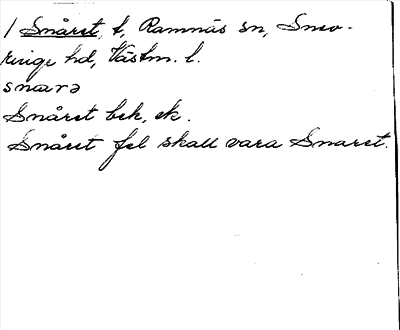 / Snåret, t, Ramnäs sn, Snev-
ringe hd, Västm. l.
snarə
Snåret bek, ek.
Snåret fel skall vara Snaret.